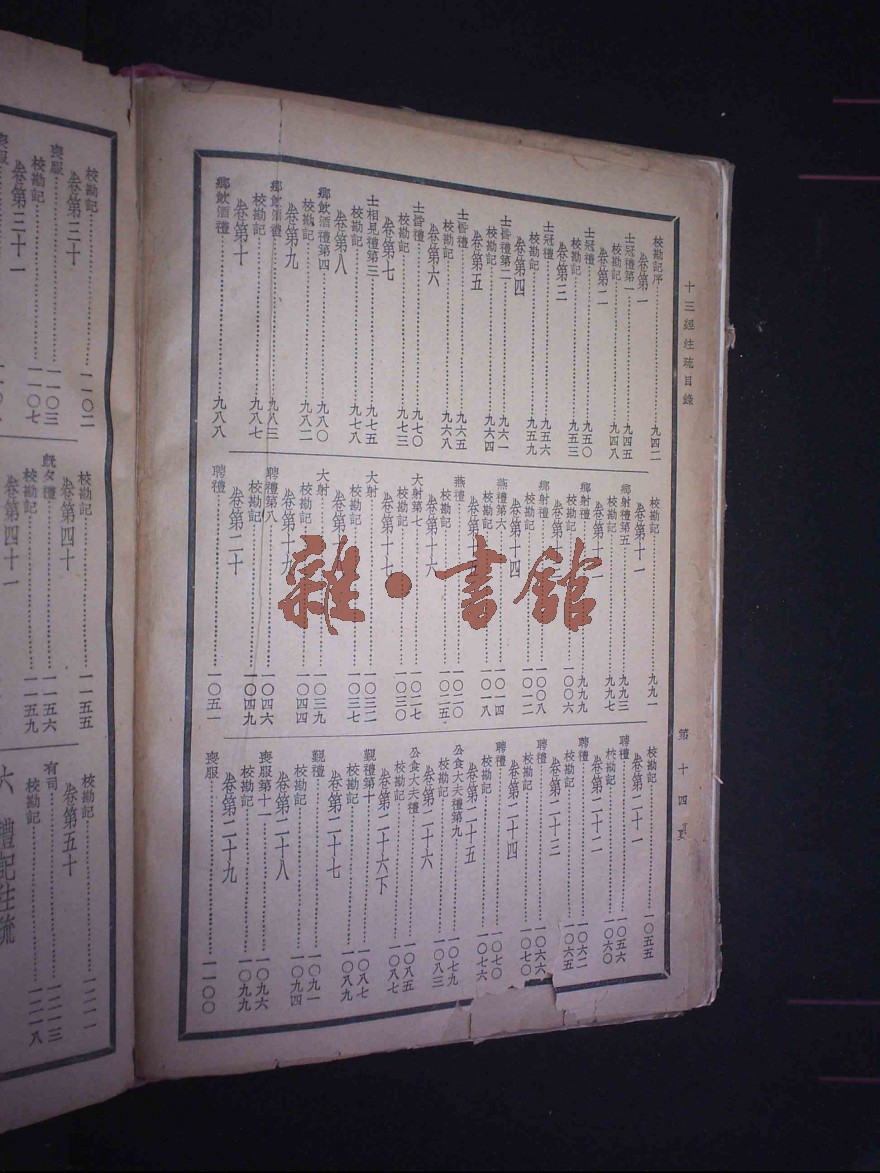 十三經注疏目錄
第十四頁
校勘記序 九四二
卷第一
士冠禮第一 九四五
校勘記 九四八
卷第二
士冠禮 九五〇
校勘記 九五三
卷第三
士冠禮 九五六
校勘記 九五九
卷第四
士昏禮第二 九六一
校勘記 九六四
卷第五
士昏禮 九六五
校勘記 九六八
卷第六
士昏禮 九七〇
校勘記 九七三
卷第七
士相見禮第三 九七五
校勘記 九七八
卷第八
鄉飲酒禮第四 九八〇
校勘記 九八二
卷第九
鄉飲酒禮 九八三
校勘記 九八七
卷第十
鄉飲酒禮 九八八
校勘記 九九一
卷第十一
鄉射禮第五 九九三
校勘記 九九七
卷第十二
鄉射禮 九九九
校勘記 一〇〇六
鄉射禮 一〇〇八
校勘記 一〇一二
卷第十四
燕禮第六 一〇一四
校勘記 一〇一八
燕禮 一〇二〇
校勘記 一〇二五
卷第十六
大射第七 一〇二七
校勘記 一〇三〇
卷第十七
大射 一〇三二
校勘記 一〇三七
大射 一〇三九
校勘記 一〇四四
卷第十九
聘禮第八 一〇四六
校勘記 一〇四九
卷第二十
聘禮 一〇五一
校勘記 一〇五五
卷第二十一
聘禮 一〇五六
校勘記 一〇六〇
卷第二十二
聘禮 一〇六二
校勘記 一〇六五
卷第二十三
聘禮 一〇六六
校勘記 一〇七〇
卷第二十四
聘禮 一〇七〇
校勘記 一〇七六
卷第二十五
公食大夫禮第九 一〇七九
校勘記 一〇八三
卷第二十六
公食大夫禮 一〇八五
校勘記 一〇八七
卷第二十六下
覲禮第十 一〇八七
校勘記 一〇八九
卷第二十七
覲禮 一〇九一
校勘記 一〇九四
卷第二十八
喪服第十一 一〇九六
校勘記 一〇九九
卷第二十九
喪服 一一〇〇
雜·書館
校勘記 一一〇二
卷第三十
喪服 一一〇三
校勘記 一一〇七
卷第三十一
喪服
校勘記 一一五五
卷第四十
既夕禮 一一五六
校勘記 一一五九
卷第四十一
校勘記 一二一一
卷第五十
有司 一二一三
校勘記 一二一八
六 禮記注疏